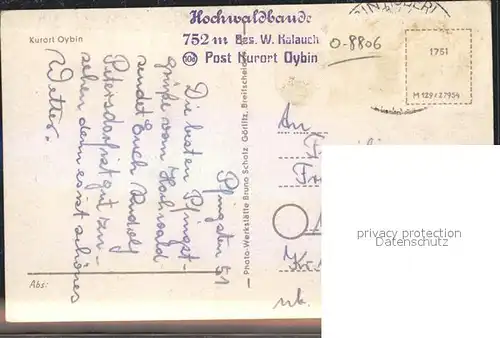 Kurort Oybin
Hochwaldbaude
752 m Bes. W. Kalauch
10a Post Kurort Oybin
O-8806
1751
M 129/Z 7954
Pfingsten 51
Die besten Pfingst-
grüße vom Hochwald
sendet Euch Rudolf
Petersdorf ist gut zu
sehen denn es ist schönes
Wetter.
Photo-Werkstätte Bruno Scholz Görlitz, Breitscheid
An
Abs:
privacy protection
Datenschutz